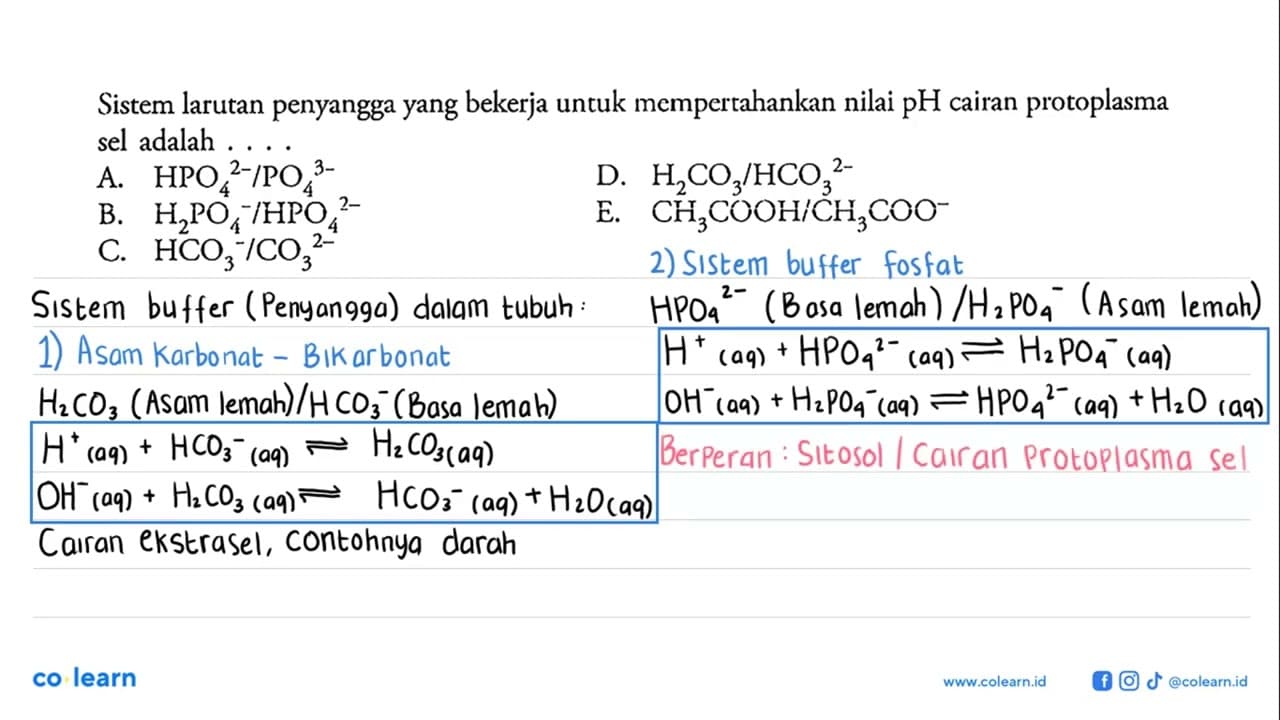 Sistem larutan penyangga yang bekerja untuk mempertahankan nilai pH cairan protoplasma
sel adalah . . . .
A. HPO₄²⁻/PO₄³⁻
B. H₂PO₄⁻/HPO₄²⁻
C. HCO₃⁻/CO₃²⁻
D. H₂CO₃/HCO₃²⁻
E. CH₃COOH/CH₃COO⁻
Sistem buffer (Penyangga) dalam tubuh :
1) Asam Karbonat – Bikarbonat
H₂CO₃ (Asam lemah)/HCO₃⁻ (Basa lemah)
H⁺ (aq) + HCO₃⁻ (aq) ⇌ H₂CO₃(aq)
OH⁻ (aq) + H₂CO₃ (aq) ⇌ HCO₃⁻ (aq) + H₂O(aq)
Cairan ekstrasel, contohnya darah
2) Sistem buffer fosfat
HPO₄²⁻ (Basa lemah) / H₂PO₄⁻ (Asam lemah)
H⁺ (aq) + HPO₄²⁻ (aq) ⇌ H₂PO₄⁻ (aq)
OH⁻ (aq) + H₂PO₄⁻ (aq) ⇌ HPO₄²⁻ (aq) + H₂O (aq)
Berperan : Sitosol / Cairan Protoplasma sel
co learn
www.colearn.id
@colearn.id